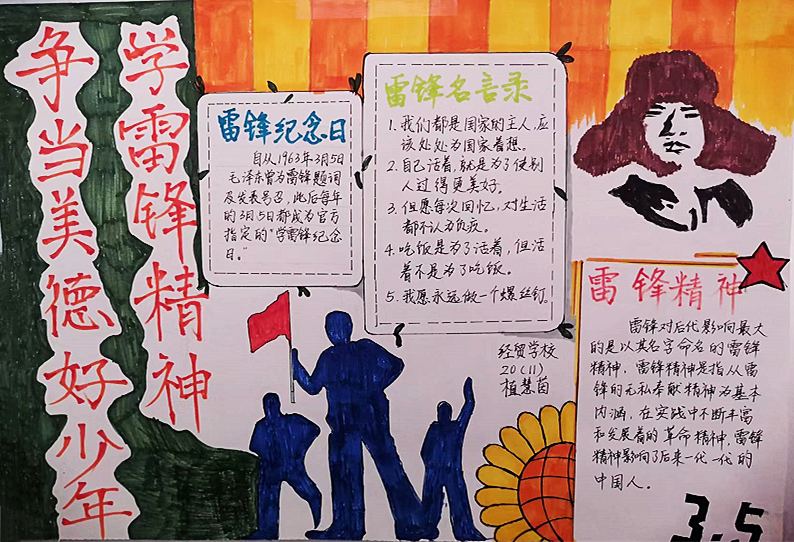 学雷锋精神
争当美德好少年
雷锋纪念日
自从1963年3月5日
毛泽东曾为雷锋题词
及发表号召，此后每年
的3月5日都成为官方
指定的“学雷锋纪念
日。”
雷锋名言录
1. 我们都是国家的主人，应
该处处为国家着想。
2. 自己活着，就是为了使别
人过得更美好。
3. 但愿每次回忆，对生活
都不认为负疚。
4. 吃饭是为了活着，但活
着不是为了吃饭。
5. 我愿永远做一个螺丝钉。
经贸学校
20(11)
植慧茵
雷锋精神
雷锋对后代影响最大
的是以其名字命名的雷锋
精神，雷锋精神是指从雷
锋的无私奉献精神为基本
内涵，在实践中不断丰富
和发展着的革命精神，雷锋
精神影响了后来一代一代的
中国人。
3.5